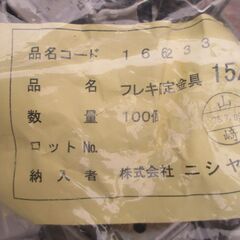 品名コード 16233
品名 フレキ固定金具 15A
数量 100個
ロットNo.
納入者 株式会社 ニシヤ
山
崎